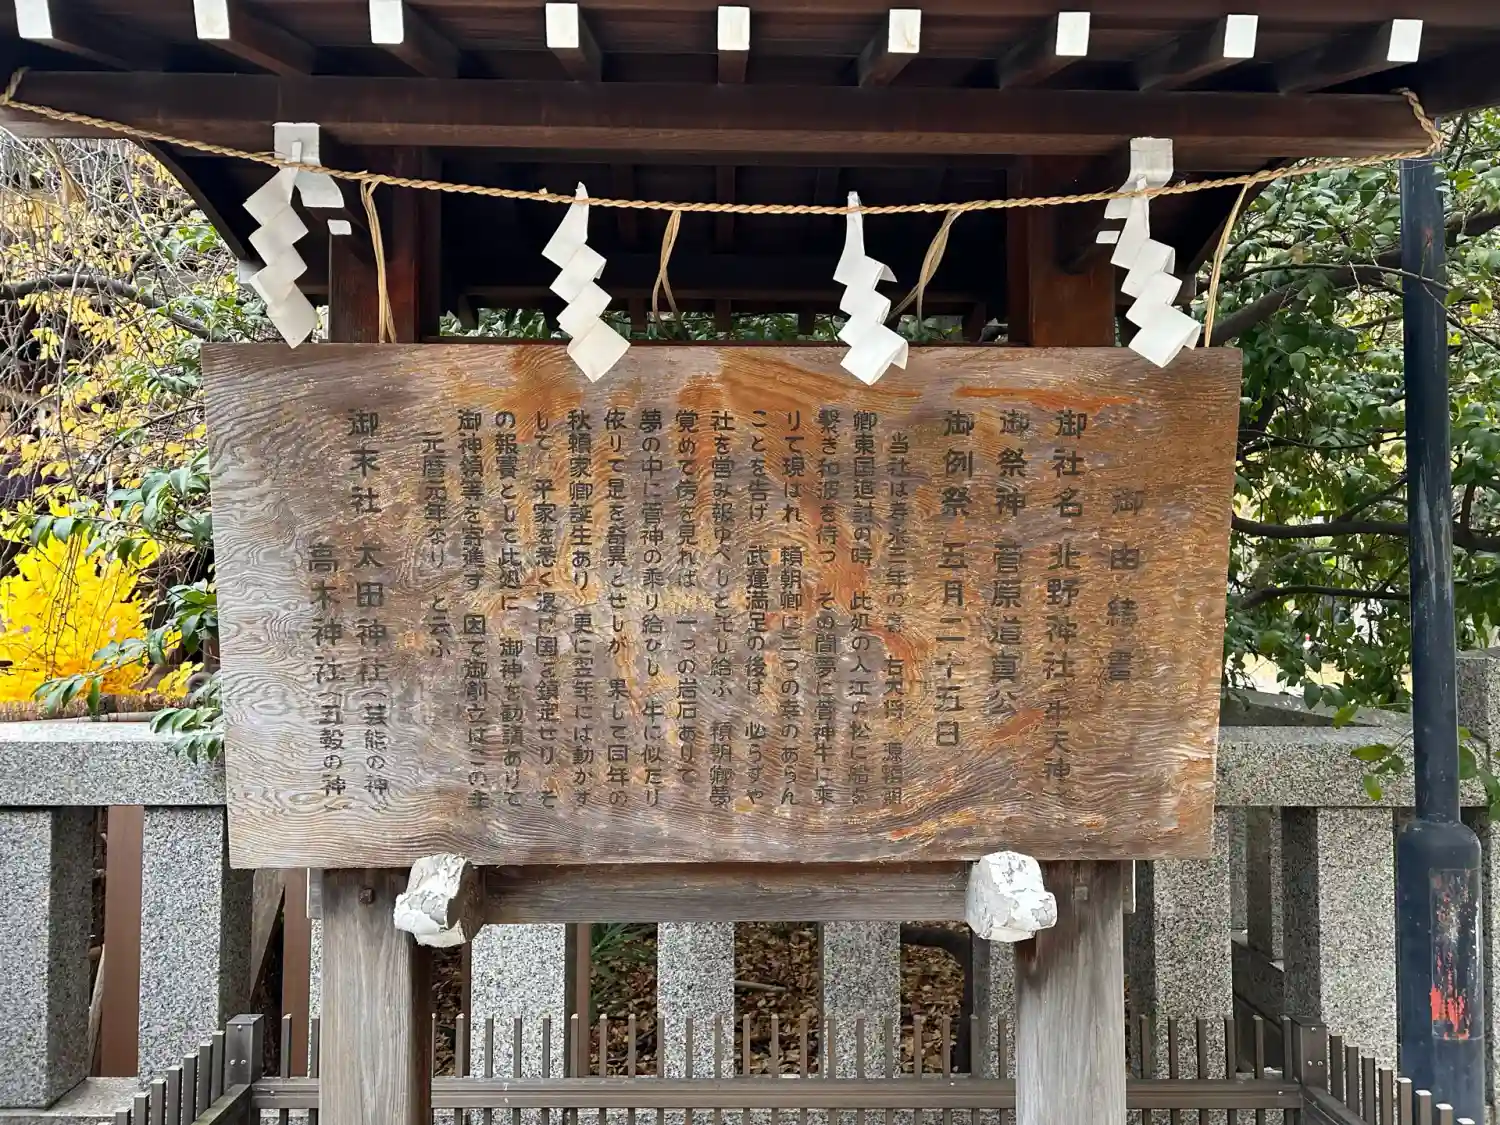 御由緒書
御社名 北野神社（牛天神）
御祭神 菅原道真公
御例祭 五月二十五日
当社は寿永三年の春 右大将 源頼朝
卿東国追討の時 此処の入江の松に船を
繋ぎ和波を待つ その間夢に菅神牛に乗
りて現はれ 頼朝卿に二つの幸のあらん
ことを告げ 武運満足の後は 必らずや
社を営み報ゆべしと託し給ふ 頼朝卿夢
覚めて傍を見れば一つの岩石ありて
夢の中に菅神の乗り給ひし 牛に似たり
依りて是を奇異とせしが 果して同年の
秋頼家卿誕生あり 更に翌年には動かず
して 平家を悉く退け国を鎮定せり そ
の報賽として此処に 御神を勧請ありて
御神領等を寄進す 因て御創立はこの年
元暦元年なり と云ふ
御末社 太田神社（芸能の神）
高木神社（五穀の神）